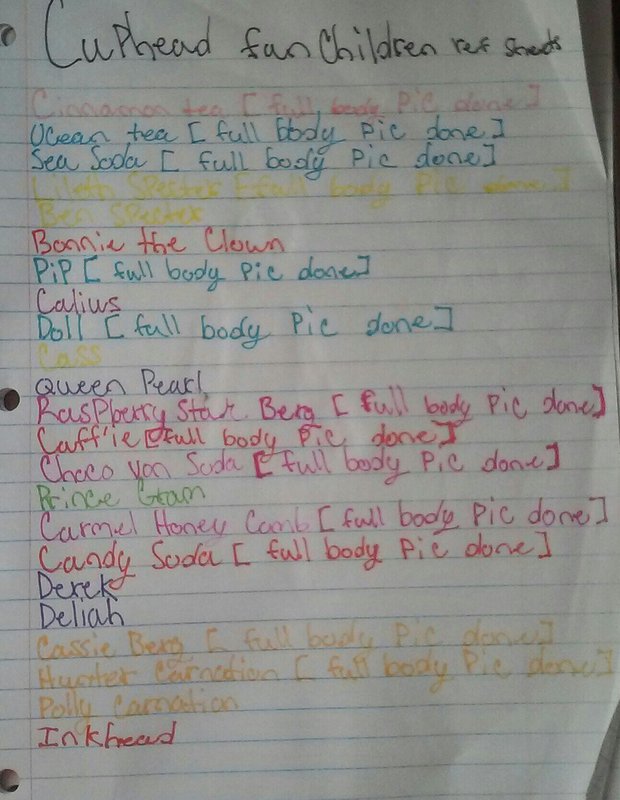 Cuphead fan Children ref sheets
Cinnamon tea [ full body Pic done ]
Ocean tea [ full bbody pic done ]
Sea Soda [ full body Pic done ]
Lileth Specter [ full body Pic done ]
Ben Specter
Bonnie the Clown
PiP [ full body pic done ]
Calius
Doll [ full body Pic done ]
Cass
Queen Pearl
RasPberry Star Berg [ full body Pic done ]
Caff'ie [ full body Pic done ]
Choco von Soda [ full body Pic done ]
Prince Gram
Carmel Honey Comb [ full body Pic done ]
Candy Soda [ full body Pic done ]
Derek
Deliah
Cassie Berg [ full body Pic done ]
Hunter Carnation [ full body Pic done ]
Polly Carnation
Inkhead